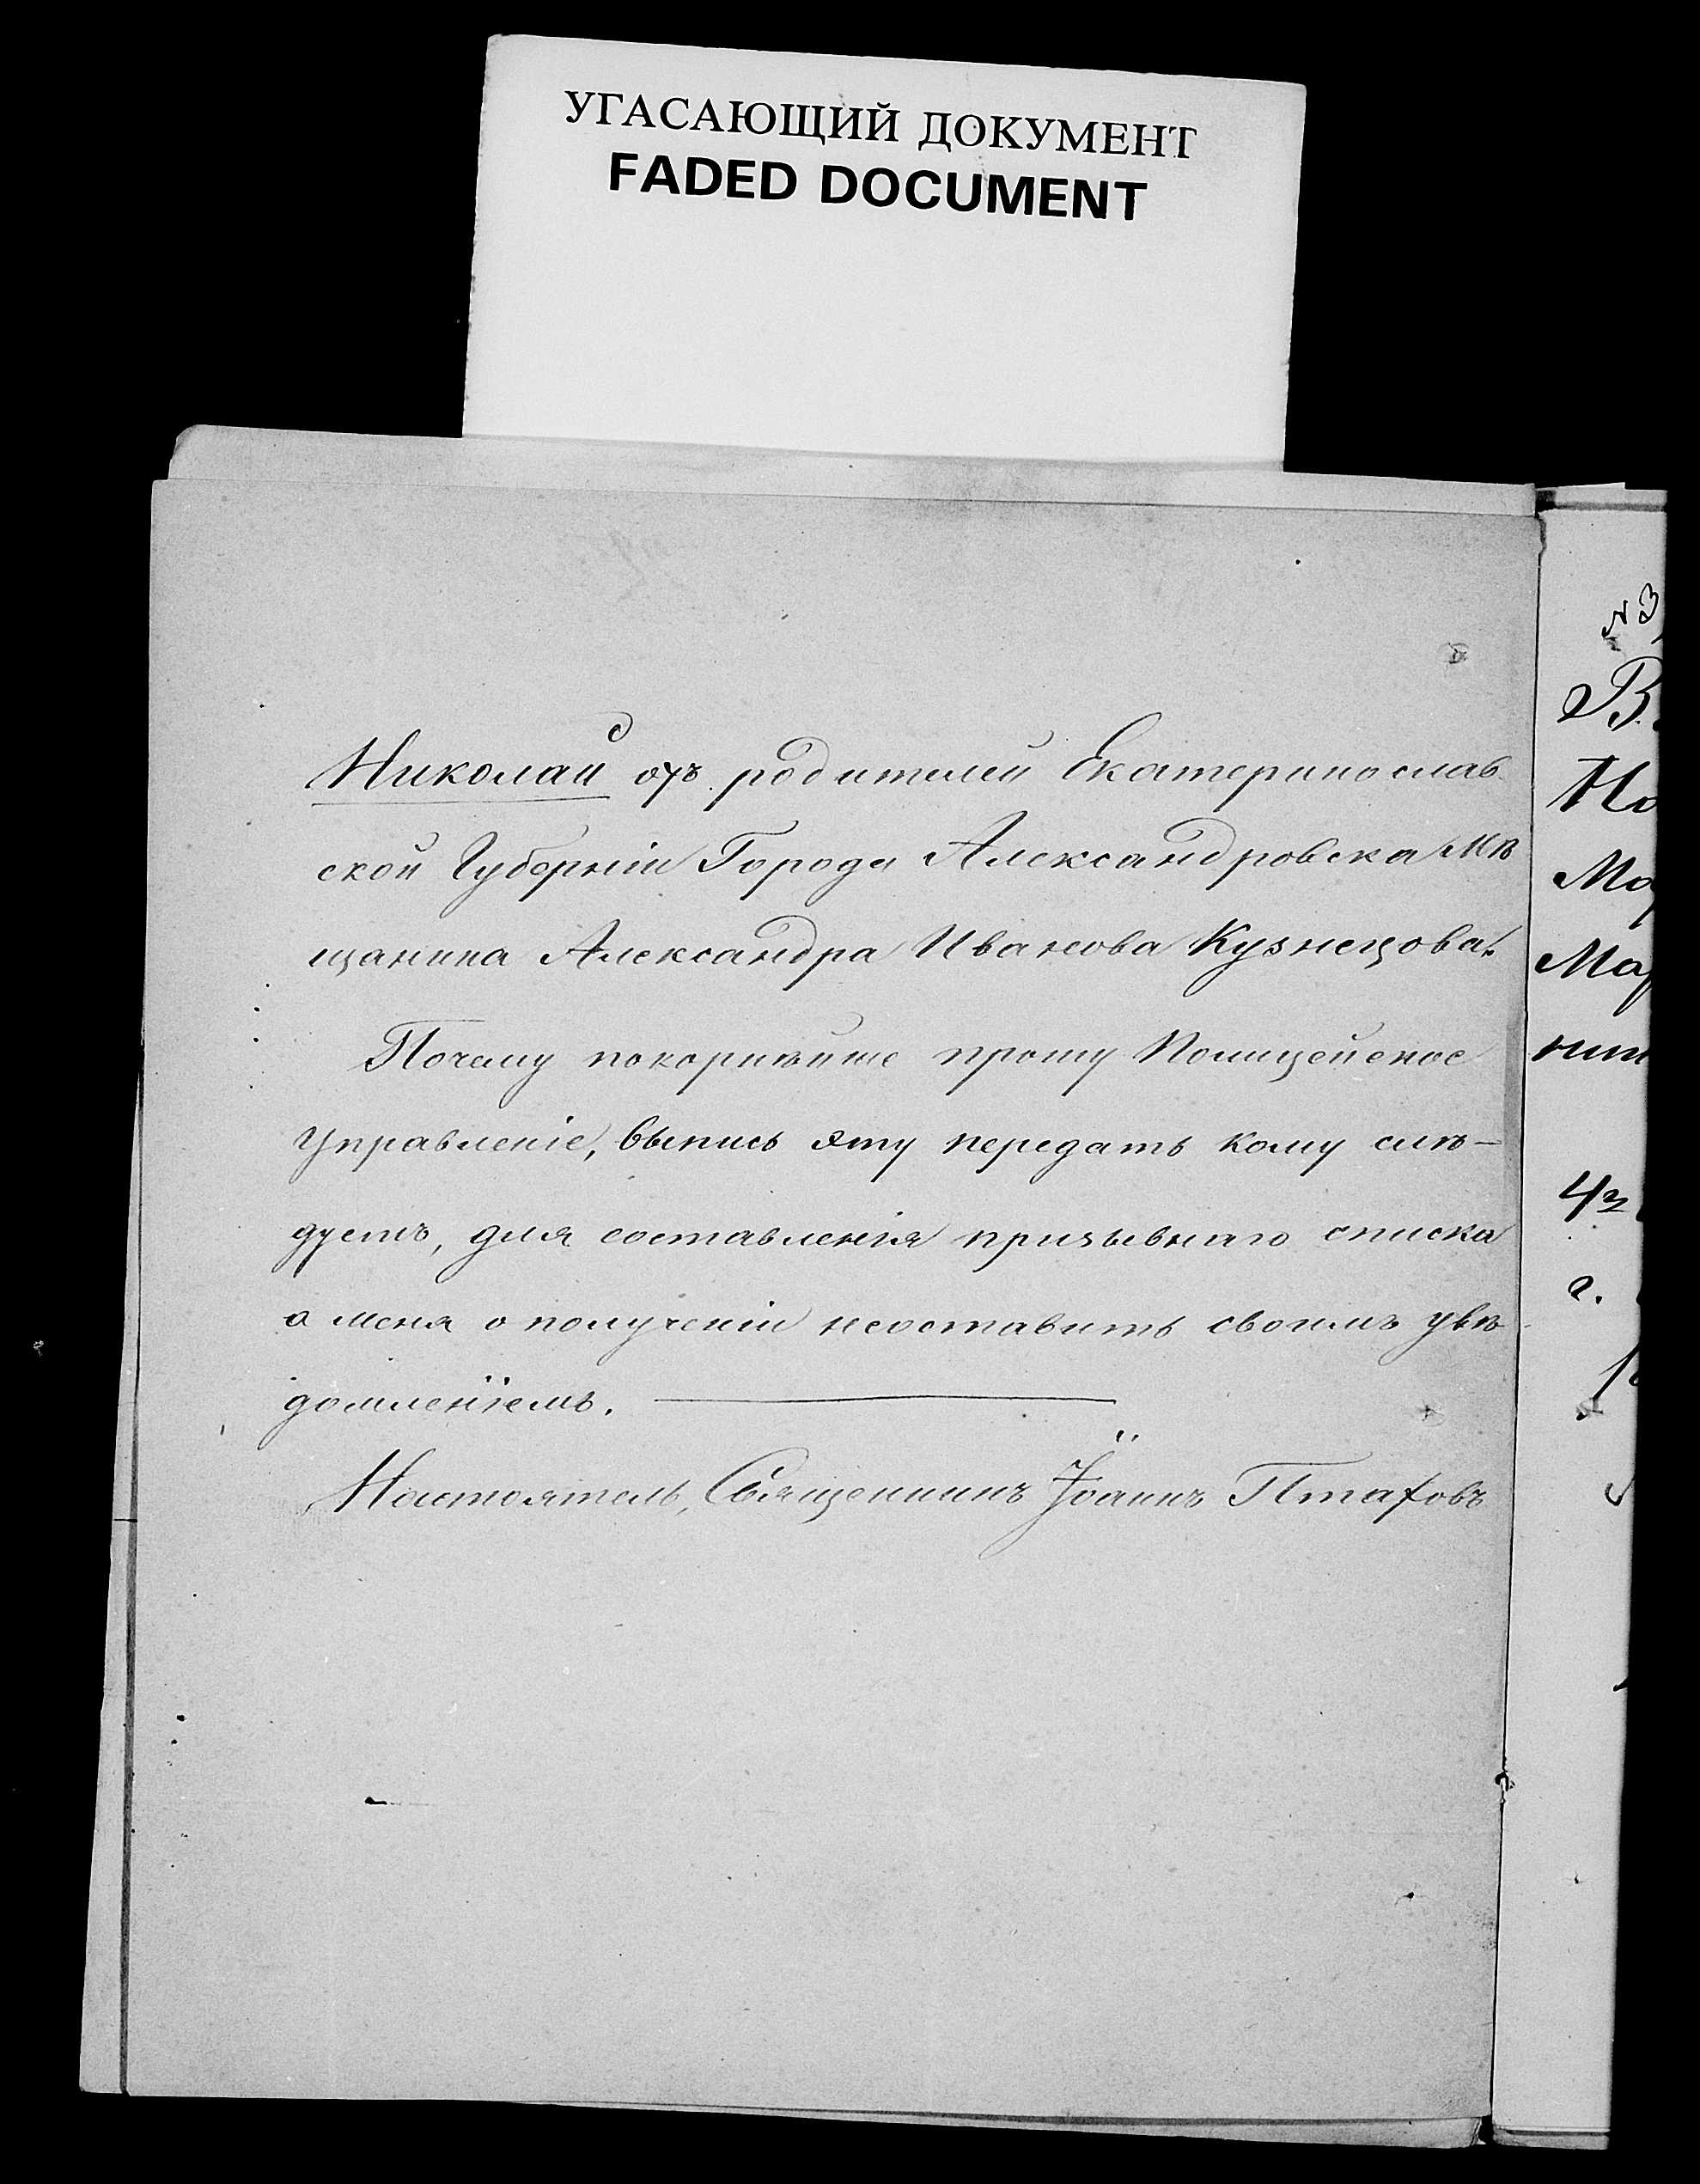 УГАСАЮЩИЙ ДОКУМЕНТ
FADED DOCUMENT
Николай отъ родителей Екатеринослав
ской Губерніи Города Александровска мѣ
щанина Александра Иванова Кузнецова.
Почему покорнѣйше прошу Полицейское
Управленіе, выпись эту передать кому слѣ-
дуетъ, для составленія призывнаго списка
а меня о полученіи неоставить своимъ увѣ
домленіемъ.
Настоятель, Священникъ Іоаннъ
№3
В.
Но
Мо
Мар